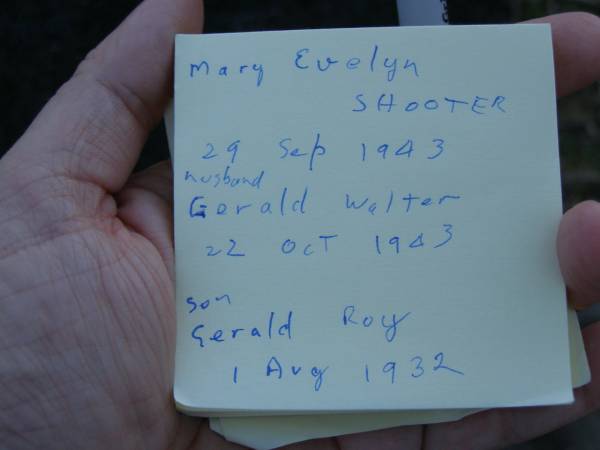 Mary Evelyn
SHOOTER
29 Sep 1943
husband
Gerald Walter
22 Oct 1943
son
Gerald Roy
1 Aug 1932